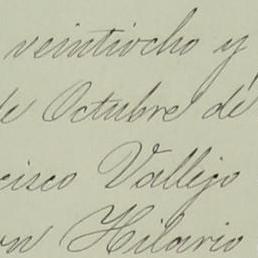 veintiocho y
de Octubre de
cisco Vallejo
on Hilario